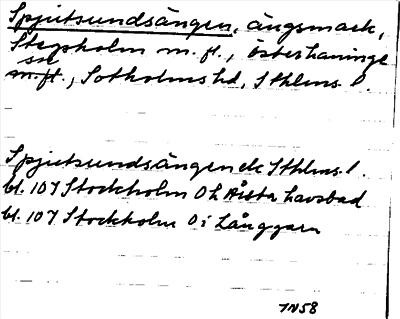 Spjutsundsängen, ängsmark,
Stegsholm m. fl., Österhaninge
sn
m. fl., Sotholms hd, Sthlms l.
Spjutsundsängen ek Sthlms l.
bl. 107 Stockholm O h Årsta havsbad
bl. 107 Stockholm O i Långgarn
1N58